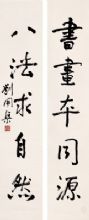 書畫本同源
八法求自然
劉開渠